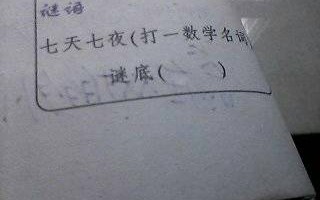 谜语
七天七夜(打一数学名词
谜底( )